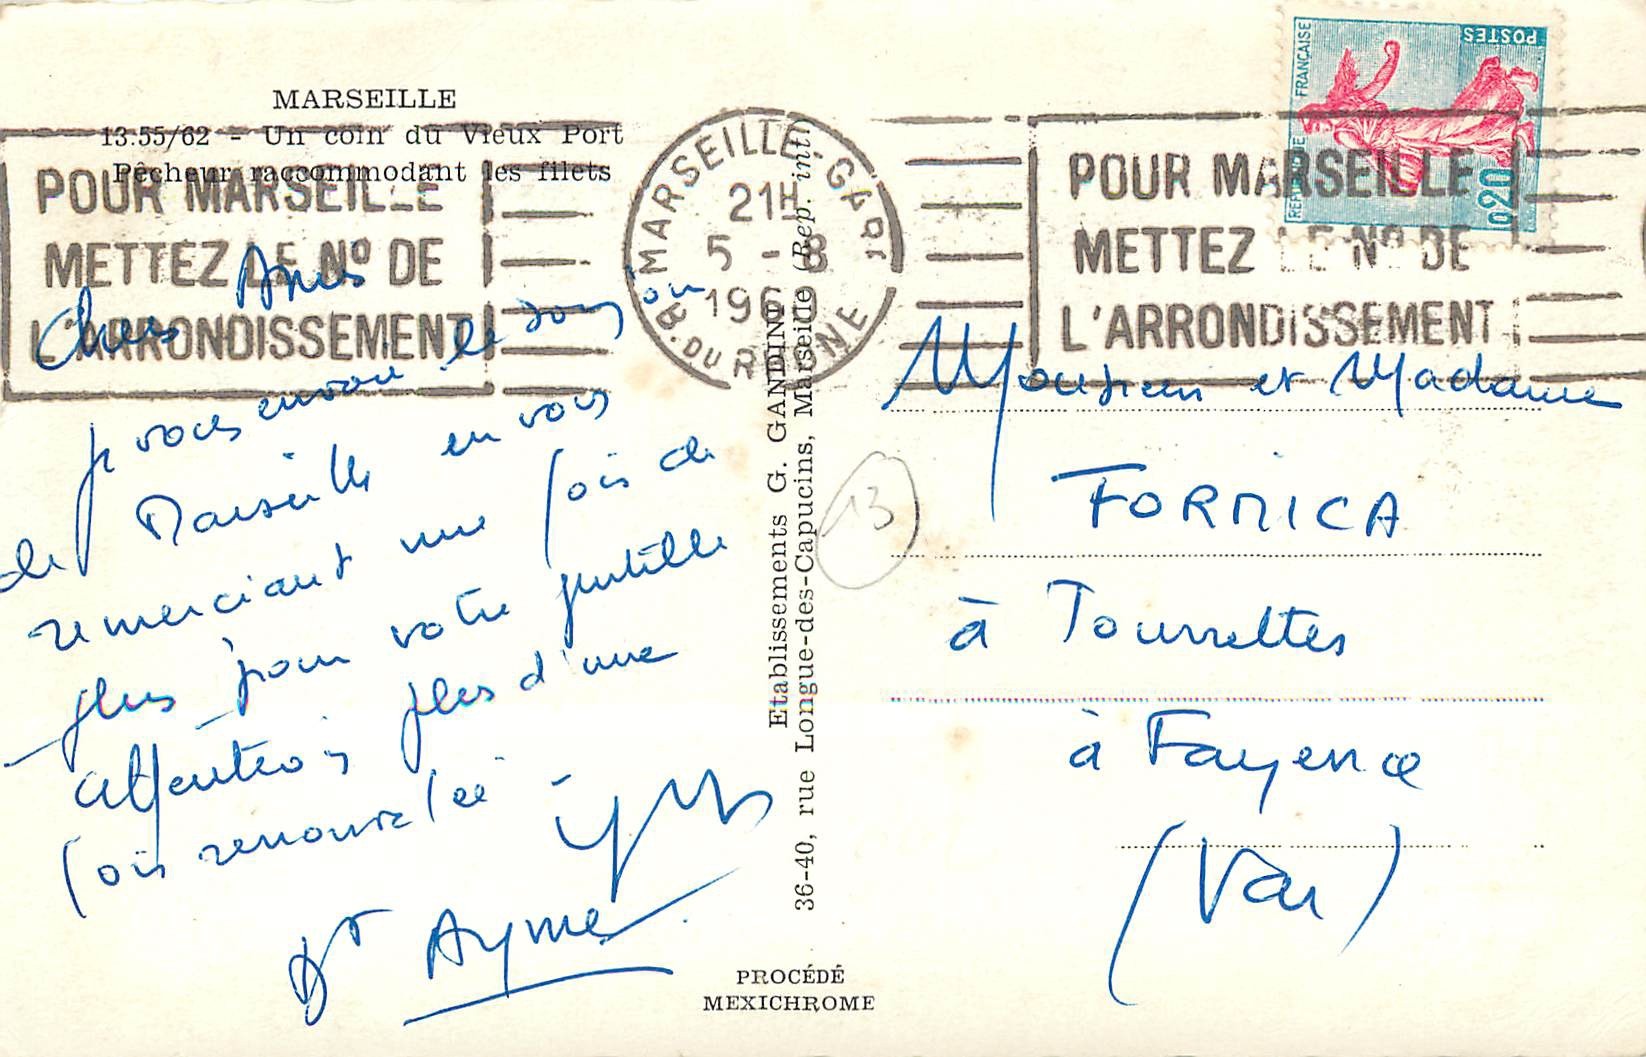 MARSEILLE
13.55/62 - Un coin du Vieux Port
Pêcheur raccommodant les filets
POUR MARSEILLE
METTEZ LE Nº DE
L'ARRONDISSEMENT
MARSEILLE-GARE
21H
5 - 8
196
B. DU RHONE
POUR MARSEILLE
METTEZ LE Nº DE
L'ARRONDISSEMENT
REPUBLIQUE FRANÇAISE
POSTES
0,20
Chers Amis
je vous envoie le bonjour
de Marseille en vous
remerciant une fois de
plus pour votre gentille
attention plus d'une
fois renouvelée -
Dr Ayme
Etablissements G. GANDINI
36-40, rue Longue-des-Capucins, Marseille (Rep. int.)
13
Monsieur et Madame
FORMICA
à Tourrettes
à Fayence
(Var)
PROCÉDÉ
MEXICHROME